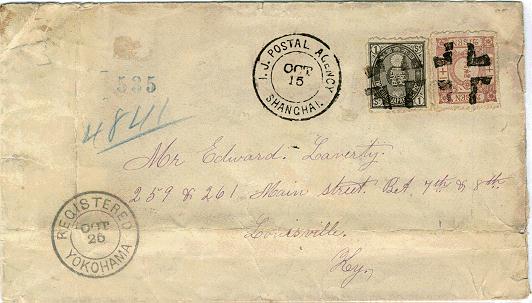 I.J. POSTAL AGENCY
OCT
15
SHANGHAI.
535
4841
Mr Edward. Laverty.
259 & 261 Main street. Bet 7th & 8th.
Louisville.
Ky.
REGISTERED
OCT
26
YOKOHAMA